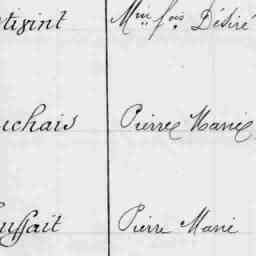 tigint Min fois Désiré
uchais Pierre Marie
ussait Pierre Marie